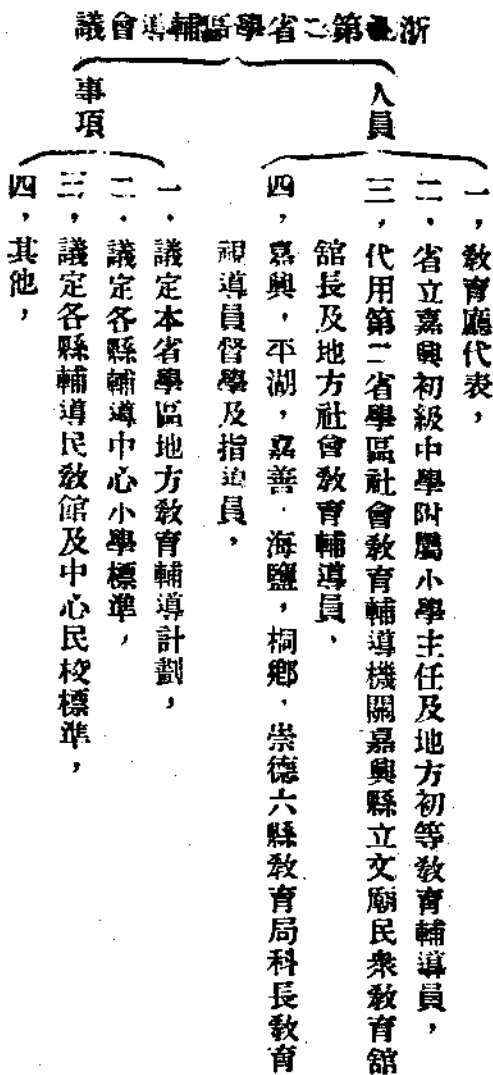 浙江第二省學區輔導會議
人員
一，教育廳代表，
二，省立嘉興初級中學附屬小學主任及地方初等教育輔導員，
三，代用第二省學區社會教育輔導機關嘉興縣立文廟民衆教育舘
舘長及地方社會教育輔導員，
四，嘉興，平湖，嘉善，海鹽，桐鄉，崇德六縣教育局科長教育
視導員督學及指導員，
事項
一，議定本省學區地方教育輔導計劃，
二，議定各縣輔導中心小學標準，
三，議定各縣輔導民敎館及中心民校標準，
四，其他，